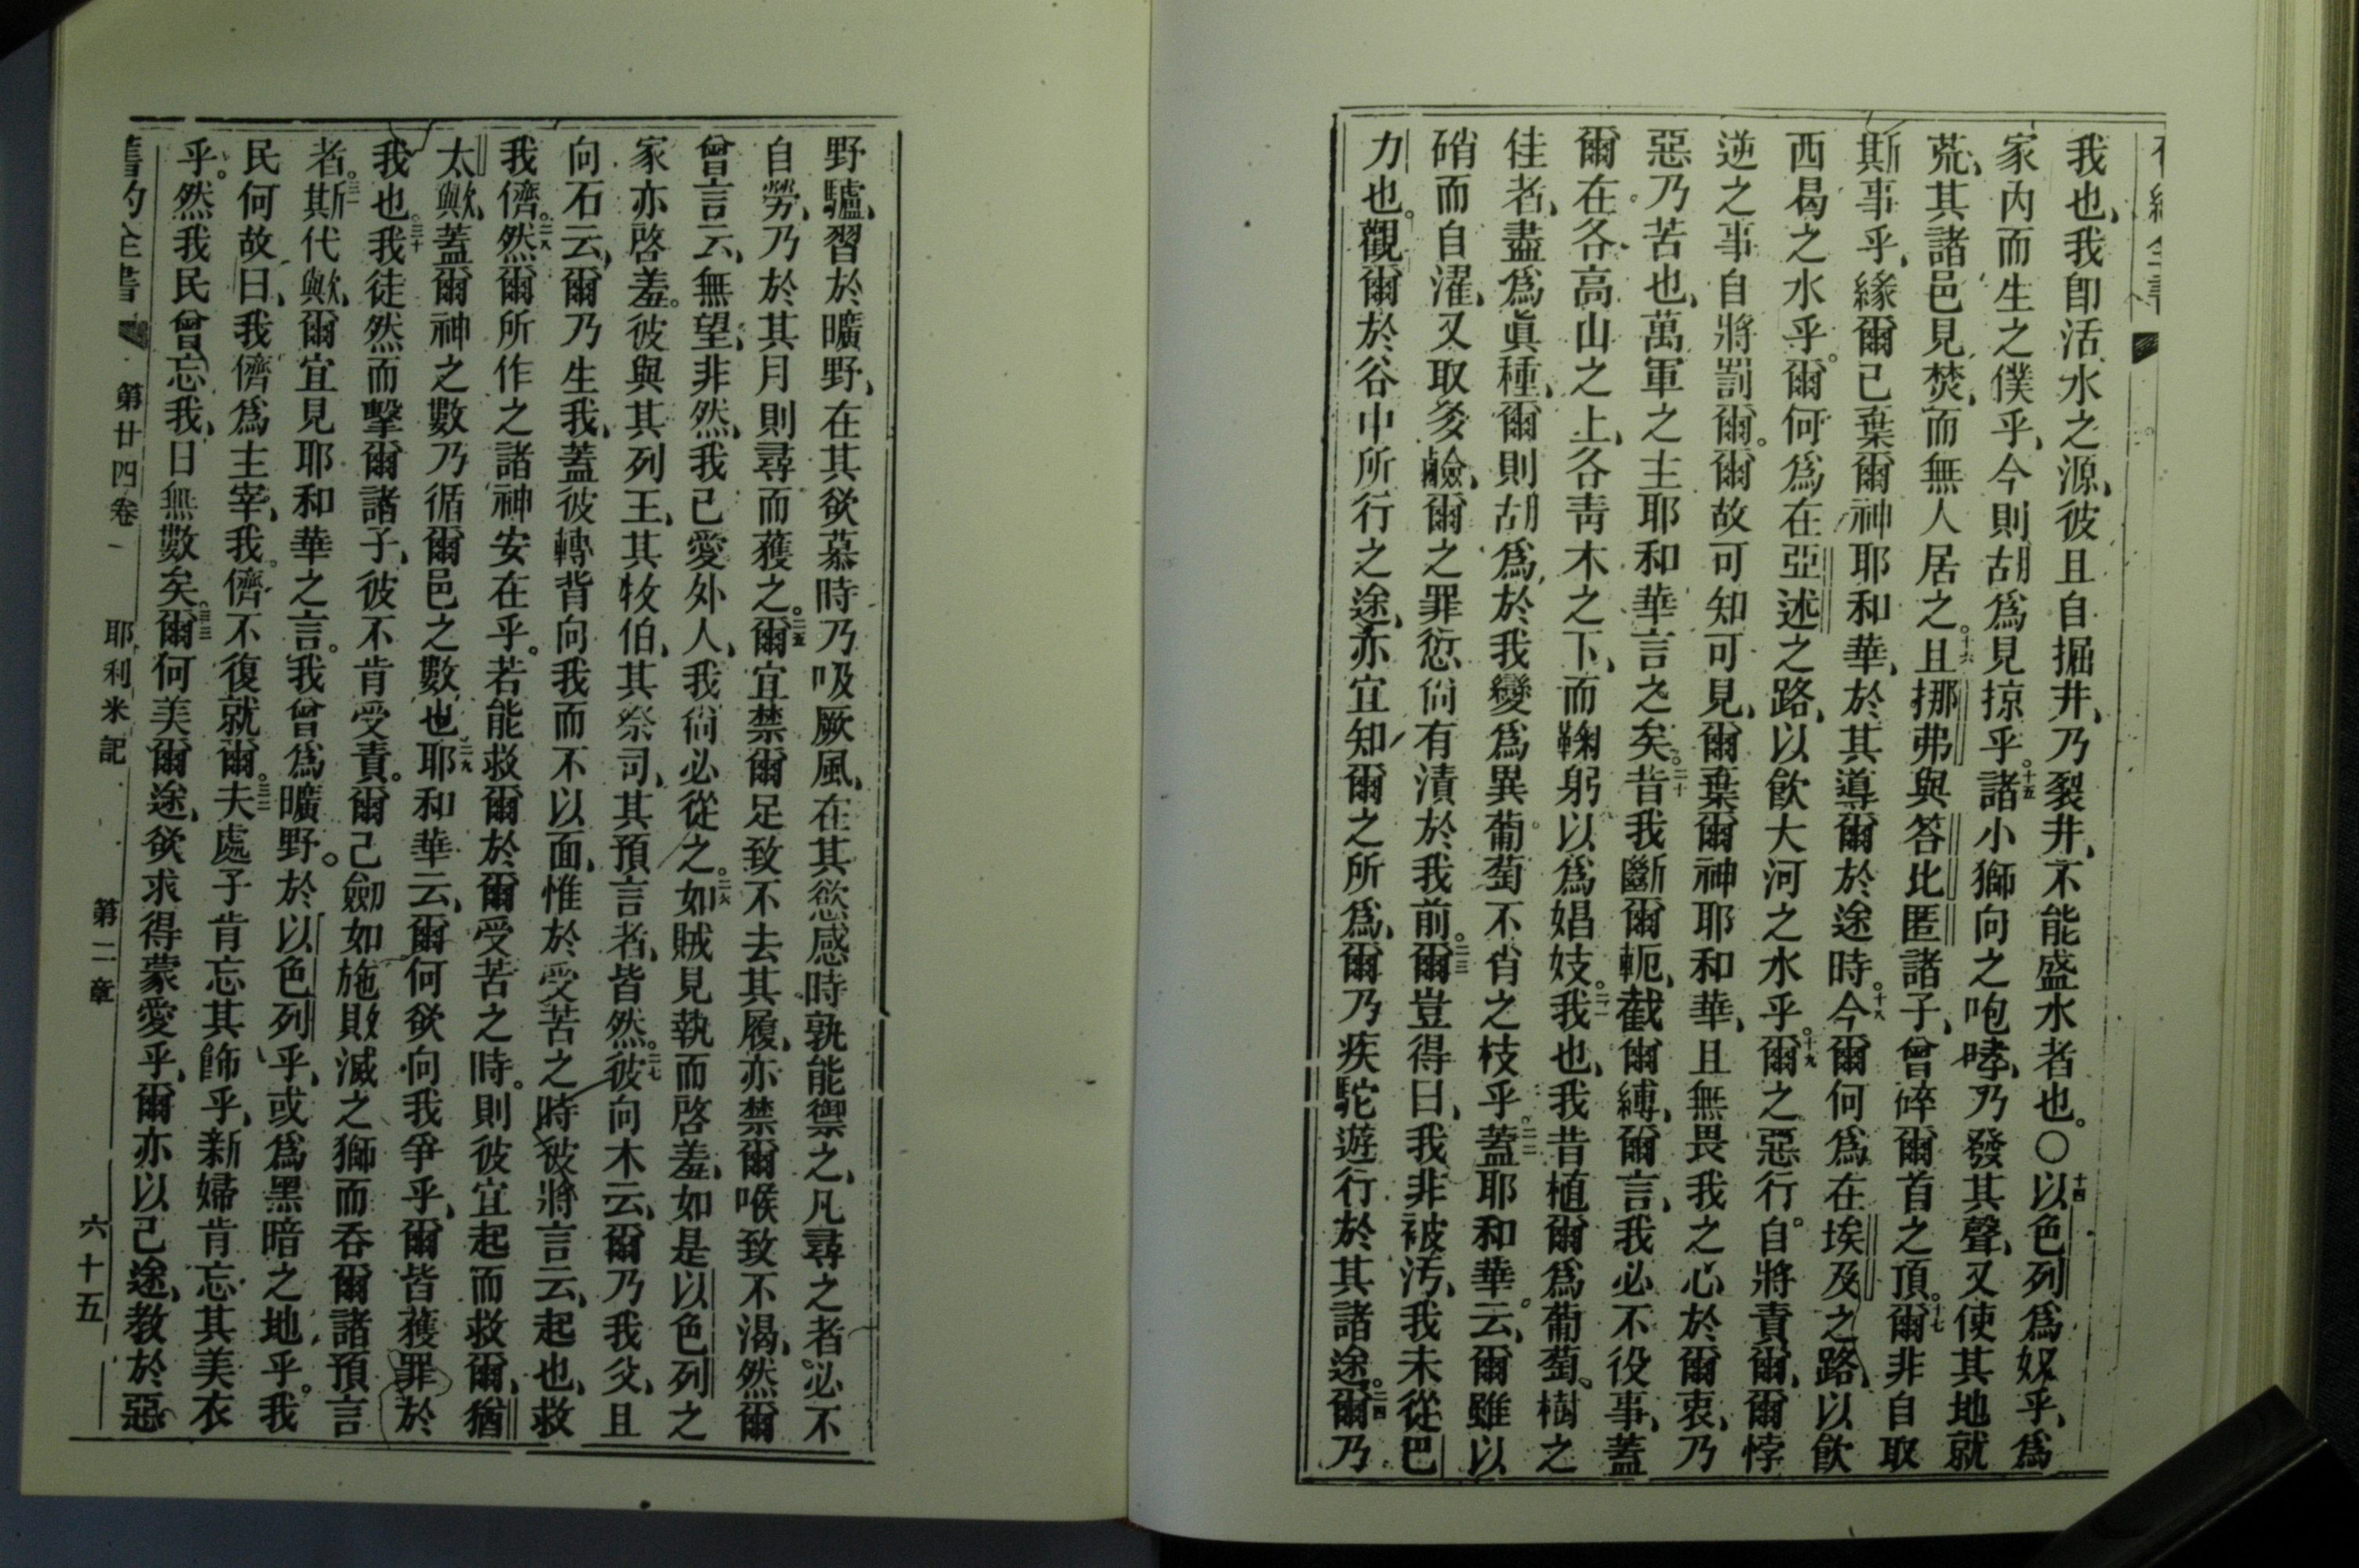 我也、我卽活水之源、彼且自掘井、乃裂井、不能盛水者也。〇十四以色列爲奴乎、爲
家內而生之僕乎、今則胡爲見掠乎。十五諸小獅向之咆哮、乃發其聲、又使其地就
荒、其諸邑見焚、而無人居之。十六且挪弗與答比匿諸子、曾碎爾首之頂。十七爾非自取
斯事乎、緣爾已棄爾神耶和華、於其導爾於途時。十八今爾何爲在埃及之路、以飮
西曷之水乎。爾何爲在亞述之路、以飮大河之水乎。十九爾之惡行自將責爾、爾悖
逆之事自將罰爾。爾故可知可見、爾棄爾神耶和華、且無畏我之心於爾衷、乃
惡乃苦也、萬軍之主耶和華言之矣。二十昔我斷爾軛、截爾縛、爾言、我必不役事、蓋
爾在各高山之上、各靑木之下、而鞠躬以爲娼妓。二一我也、我昔植爾爲葡萄樹之
佳者、盡爲眞種、爾則胡爲於我變爲異葡萄不肖之枝乎。二二蓋耶和華云、爾雖以
硝而自濯、又取多鹼、爾之罪愆尙有漬於我前。二三爾豈得曰、我非被汚、我未從巴
力也。觀爾於谷中所行之途、亦宜知爾之所爲、爾乃疾駝遊行於其諸途。二四爾乃
野驢、習於曠野、在其欲慕時乃吸厥風、在其慾感時孰能禦之、凡尋之者必不
自勞、乃於其月則尋而獲之。二五爾宜禁爾足致不去其履、亦禁爾喉致不渴、然爾
曾言云、無望、非然、我已愛外人、我尙必從之。二六如賊見執而啓羞、如是以色列之
家亦啓羞。彼與其列王、其牧伯、其祭司、其預言者、皆然。二七彼向木云、爾乃我父、且
向石云、爾乃生我、蓋彼轉背向我而不以面、惟於受苦之時彼將言云、起也、救
我儕。二八然爾所作之諸神安在乎。若能救爾於爾受苦之時。則彼宜起而救爾、猶
太歟、蓋爾神之數乃循爾邑之數也。二九耶和華云、爾何欲向我爭乎、爾皆獲罪於
我也。三十我徒然而擊爾諸子、彼不肯受責。爾己劒如施敗滅之獅而吞爾諸預言
者。三一斯代歟、爾宜見耶和華之言。我曾爲曠野。於以色列乎、或爲黑暗之地乎。我
民何故曰、我儕爲主宰、我儕不復就爾。三二夫處子肯忘其飾乎、新婦肯忘其美衣
乎。然我民曾忘我、日無數矣。三三爾何美爾途、欲求得蒙愛乎、爾亦以己途、敎於惡
舊約全書 第廿四卷 耶利米記 第二章 六十五